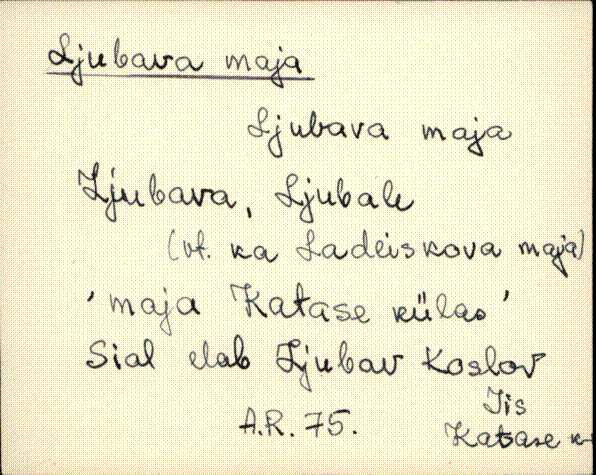 Ljubava maja
Ljubava maja
Ljubava, Ljubale
(vt. ka Ladeiskova maja)
'maja Katase külas'
Sial elab Ljubav Koslov
A.R. 75.
Iis
Katase k.